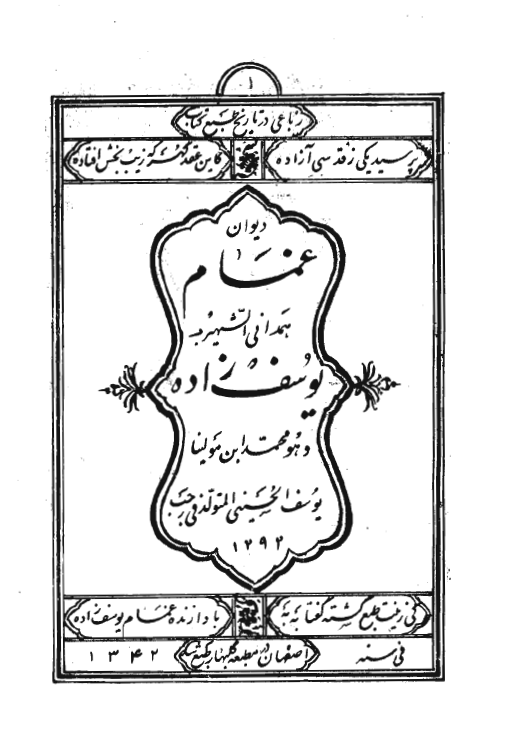 ۱
رباعی در تاریخ طبع کتاب
پرسید یکی ز قدسی آزاده کاین عقد گهر که زیب بخش افتاده
دیوان
غمام
همدانی الشهیر به
یوسف زاده
و هو محمد ابن مولینا
یوسف الحسینی المتولد فی رجب
۱۲۹۲
فی زینت طبع گشته گفتا به به بادا زنده غمام یوسف زاده
فی سنه اصفهان در مطبعه گلبهار طبع شد ۱۳۴۲